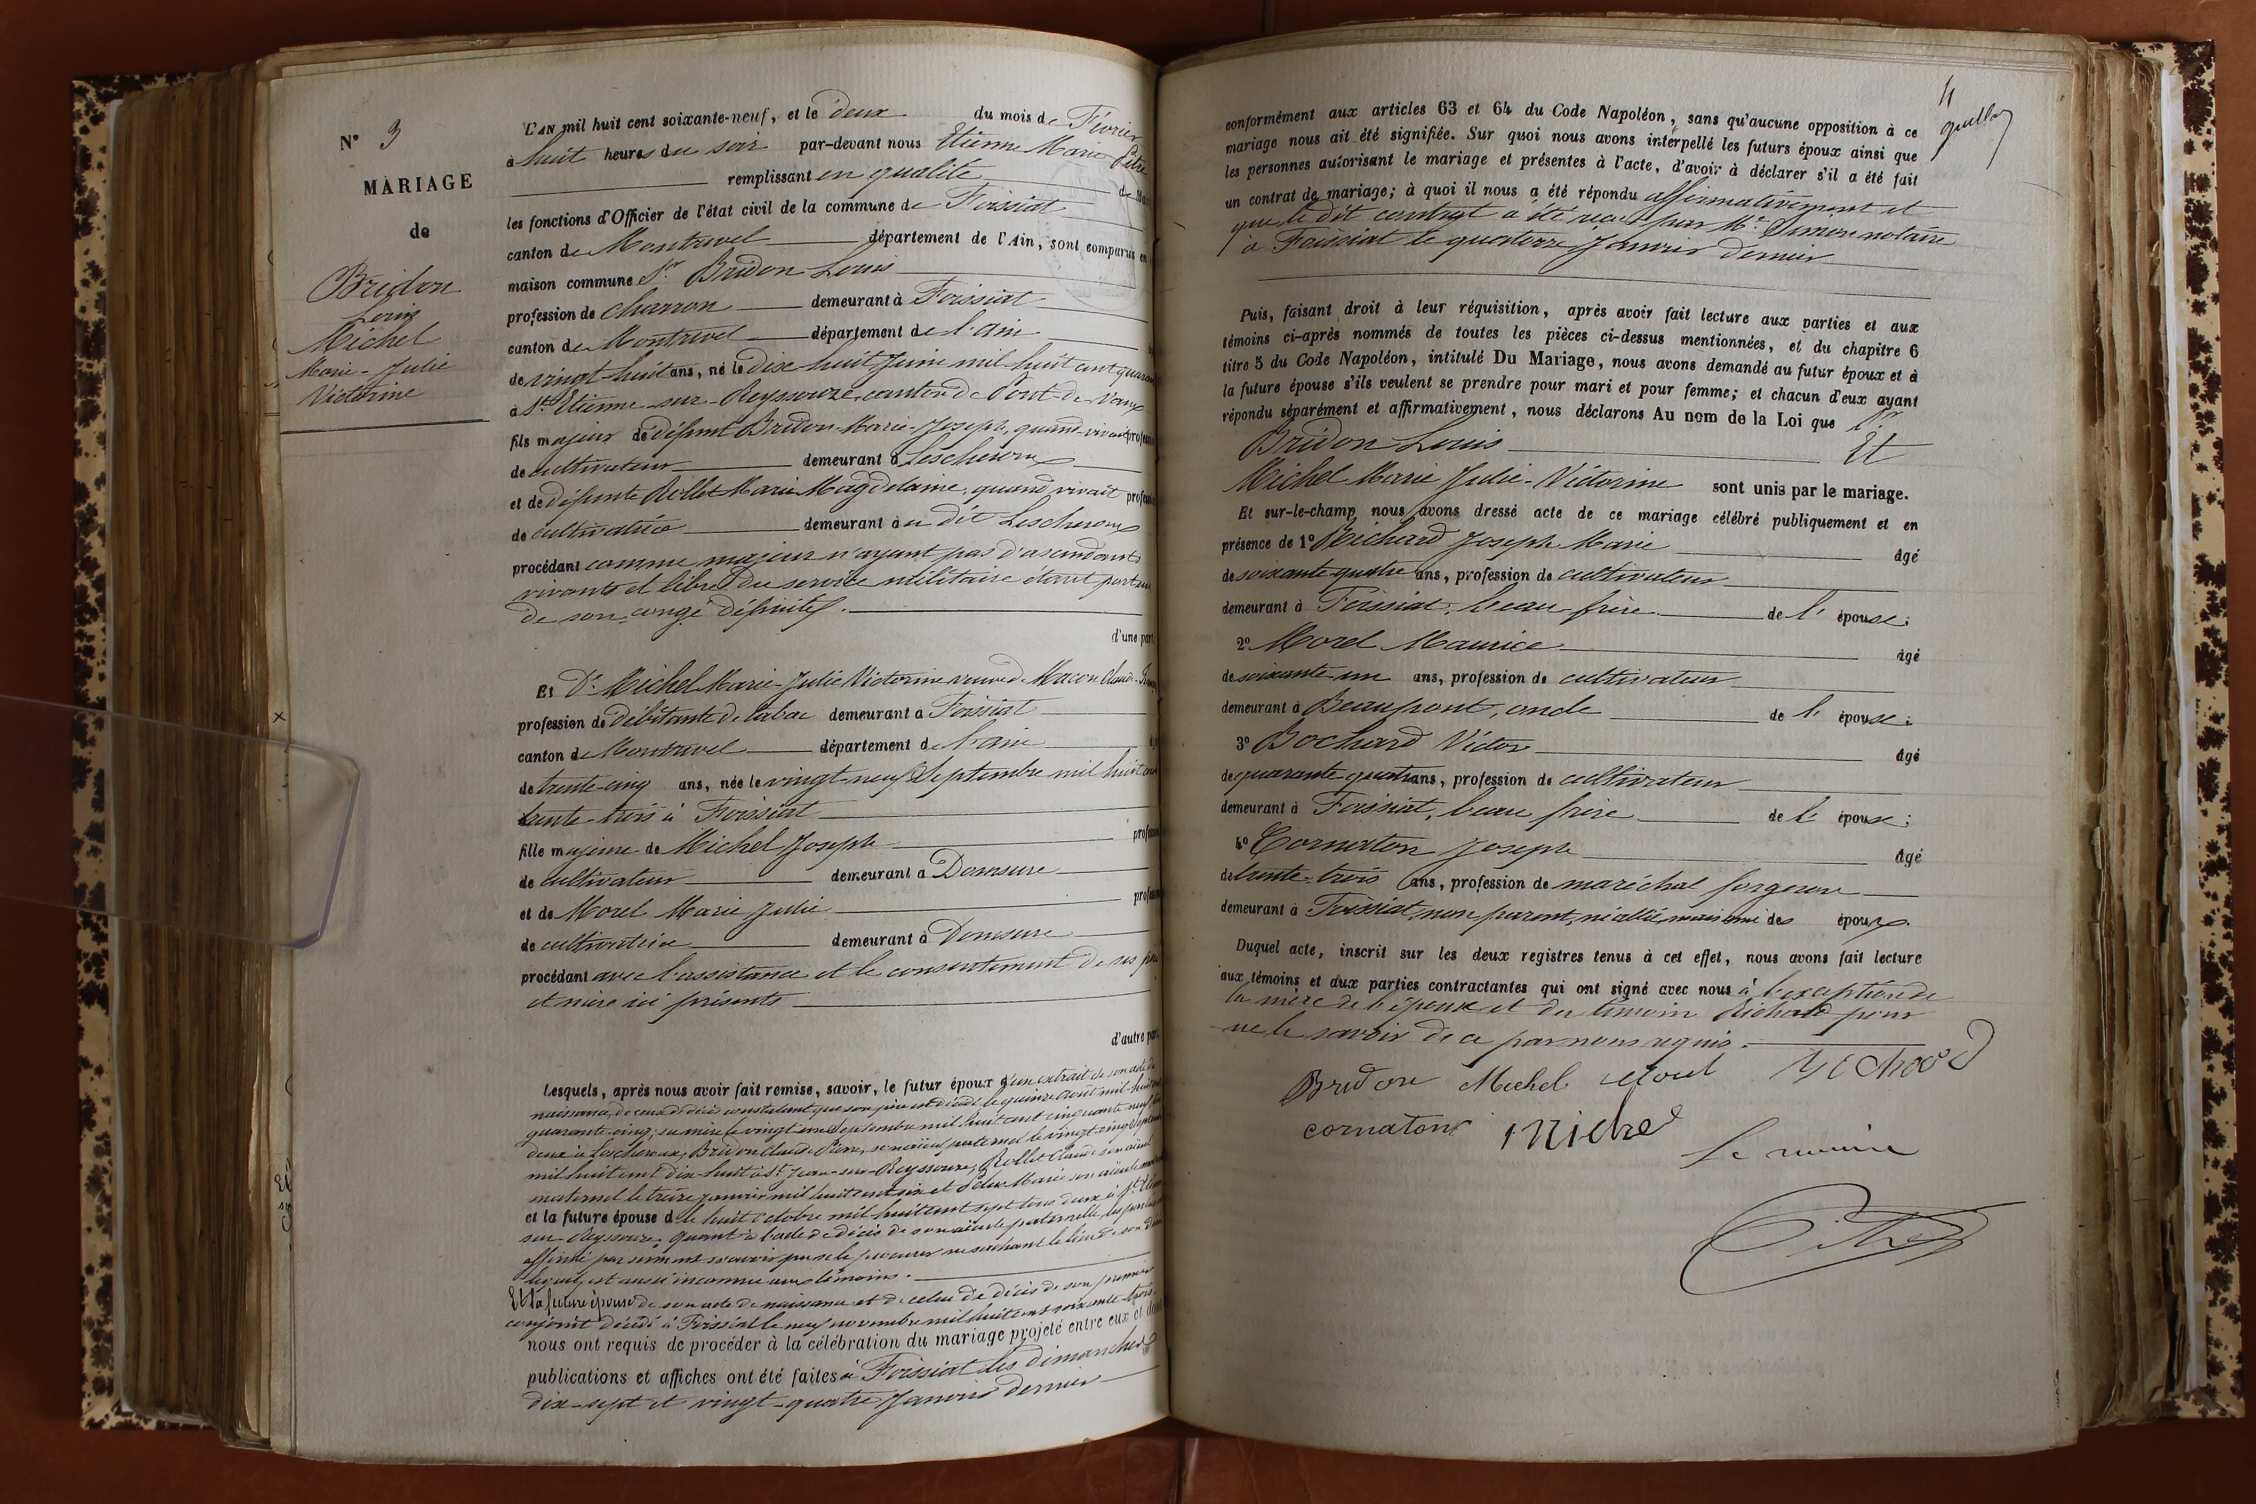 N° 3
MARIAGE
de
Bridon
Louis
Michel
Marie-Julie
Victorine
L'AN mil huit cent soixante-neuf, et le deux du mois de Février
à huit heures du soir par-devant nous Etienne Marie Pitre
remplissant en qualité de Mai
les fonctions d'Officier de l'état civil de la commune de Foissiat
canton de Montrevel département de l'Ain, sont comparus en
maison commune Sr. Bridon Louis
profession de charron demeurant à Foissiat
canton de Montrevel département de l'ain
de vingt huit ans, né le dix huit Juin mil huit cent quaran
à St. Etienne-sur-Reyssouze, canton de Pont-de-Vaux
fils majeur de défunt Bridon Marie-Joseph, quand vivait profess
de cultivateur demeurant à Lescheroux
et de défunte Rollet Marie Magdelaine, quand vivait profess
de cultivatrice demeurant à u dit Lescheroux
procédant comme majeur n'ayant pas d'ascendants
vivants et libre du service militaire étant porteur
de son congé définitif.
d'une part
Et De. Michel Marie-Julie Victorine veuve de Macon Claude-
profession de débitante de tabac demeurant à Foissiat
canton de Montrevel département de l'ain
de trente-cinq ans, née le vingt-neuf Septembre mil huit cent
trente-trois à Foissiat
fille majeure de Michel Joseph profession
de cultivateur demeurant à Domsure
et de Morel Marie Julie profession
de cultivatrice demeurant à Domsure
procédant avec l'assistance et le consentement de ses père
et mère ici présents
d'autre part
Lesquels, après nous avoir fait remise, savoir, le futur époux d'un extrait de son acte de
naissance, de ceux de décès constatant que son père est décédé le quinze août mil huit cent
quarante-cinq; sa mère le vingt Septembre mil huit cent cinquante neuf tous
deux à Lescheroux, Bridon Claude Pierre, son aïeul paternel le vingt-cinq Septembre
mil huit cent dix-huit à St. Jean-sur-Reyssouze, Rollet Claude son aïeul
maternel le treize janvier mil huit cent six et Marie son aïeule
et la future épouse d le huit octobre mil huit cent sept tous deux à St. Etienne
sur Reyssouze, quant à l'acte de décès de son aïeule paternelle, les parties ont
affirmé par serment n'avoir pu se le procurer ne sachant le lieu de son décès
lequel est aussi inconnu aux témoins.
Et la future épouse de son acte de naissance et de celui de décès de son premier
conjoint décédé à Foissiat le neuf novembre mil huit cent soixante-trois
nous ont requis de procéder à la célébration du mariage projeté entre eux et dont
publications et affiches ont été faites à Foissiat les dimanches
dix-sept et vingt-quatre Janvier dernier
4
conformément aux articles 63 et 64 du Code Napoléon, sans qu'aucune opposition à ce
mariage nous ait été signifiée. Sur quoi nous avons interpellé les futurs époux ainsi que
les personnes autorisant le mariage et présentes à l'acte, d'avoir à déclarer s'il a été fait
un contrat de mariage; à quoi il nous a été répondu affirmativement et
que le dit contrat a été reçu par Me. Simon notaire
à Foissiat le quatorze Janvier dernier
Puis, faisant droit à leur réquisition, après avoir fait lecture aux parties et aux
témoins ci-après nommés de toutes les pièces ci-dessus mentionnées, et du chapitre 6
titre 5 du Code Napoléon, intitulé Du Mariage, nous avons demandé au futur époux et à
la future épouse s'ils veulent se prendre pour mari et pour femme; et chacun d'eux ayant
répondu séparément et affirmativement, nous déclarons Au nom de la Loi que Sr.
Bridon Louis Et
Michel Marie Julie-Victorine sont unis par le mariage.
Et sur-le-champ nous avons dressé acte de ce mariage célébré publiquement et en
présence de 1° Richard Joseph Marie âgé
de soixante quatre ans, profession de cultivateur
demeurant à Foissiat, beau frère de l' épouse;
2° Morel Maurice âgé
de soixante-un ans, profession de cultivateur
demeurant à Beaupont, oncle de l' épouse;
3° Bochard Victor âgé
de quarante-quatre ans, profession de cultivateur
demeurant à Foissiat, beau frère de l' épouse;
4° Cornaton Joseph âgé
de trente-trois ans, profession de maréchal forgeron
demeurant à Foissiat, non parent, ni allié mais ami des époux.
Duquel acte, inscrit sur les deux registres tenus à cet effet, nous avons fait lecture
aux témoins et aux parties contractantes qui ont signé avec nous à l'exception de
la mère de l'épouse et du témoin Richard pour
ne le savoir de ce par nous requis.
Bridon Michel Morel
cornaton Michel
Le maire
Pitre